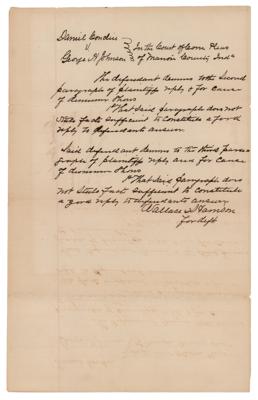 Daniel
vs
George H Johnson
In the Court of Com Pleas
of Marion County Inda
The defendant demurs to the Second
paragraph of plaintiffs reply & for Cause
of demurrer Shows
1st That Said paragraph does not
State facts sufficient to Constitute a good
reply to defendants answer
Said defendant demurs to the third para-
graph of plaintiffs reply and for Cause
of demurrer Shows
1st That Said paragraph does
not State facts sufficient to Constitute
a good reply to defendants answer
Wallace & Harrison
for deft